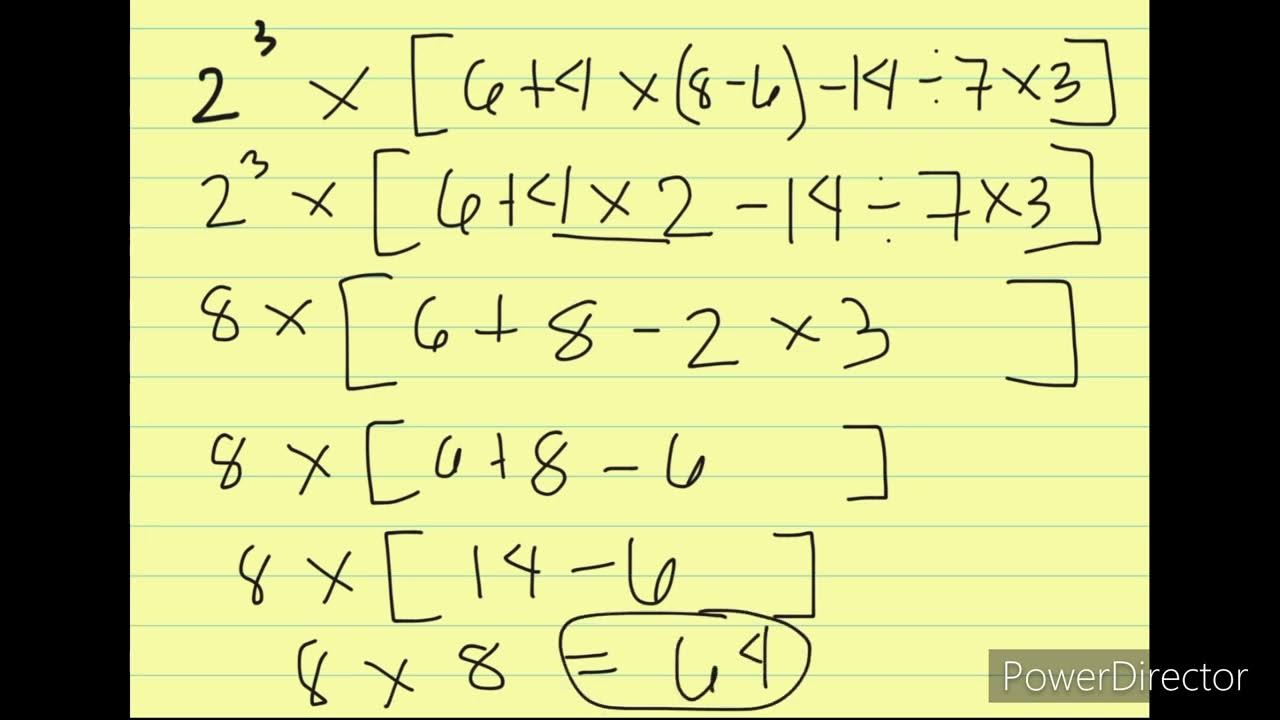 2³ × [6+4×(8-6)-14÷7×3]
2³ × [6+4×2-14÷7×3]
8 × [6+8-2×3]
8 × [6+8-6]
8 × [14-6]
8 × 8 = 64
PowerDirector